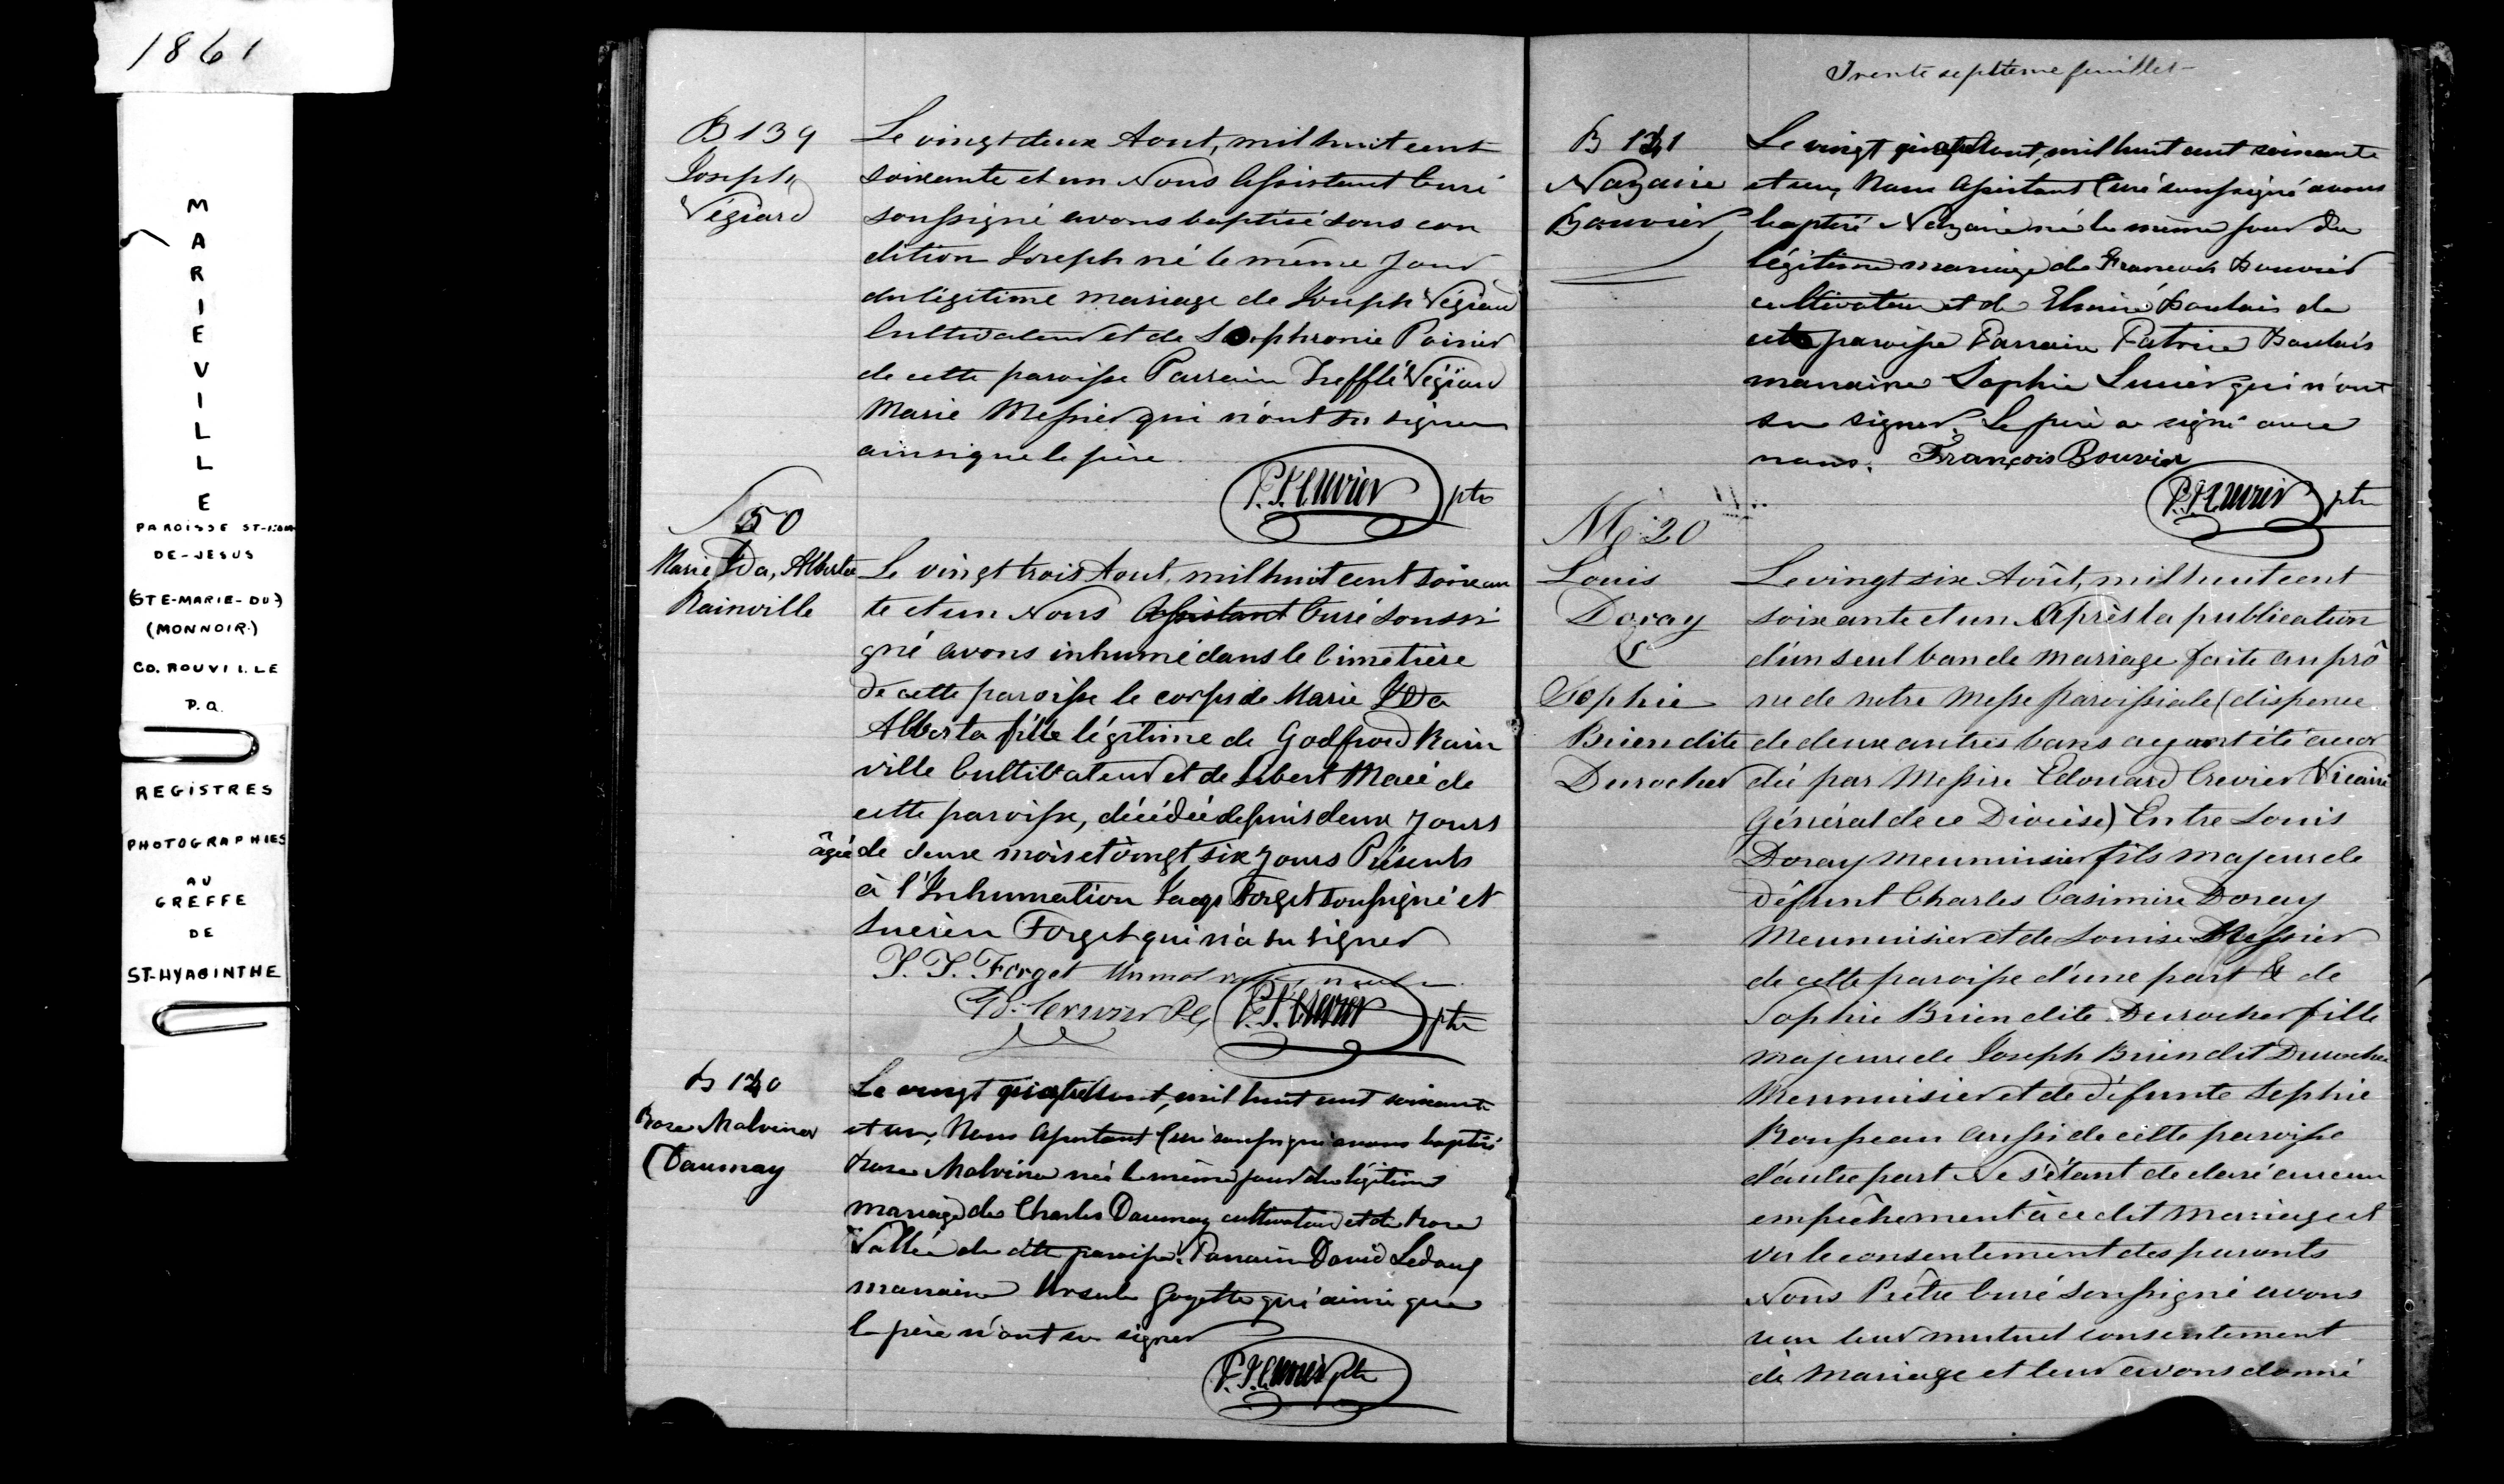 1861
M
A
R
I
E
V
I
L
L
E
PAROISSE ST-NOM
DE-JESUS
(STE-MARIE-DU-)
(MONNOIR.)
CO. ROUVILLE
P.Q.
REGISTRES
PHOTOGRAPHIES
AU
GREFFE
DE
ST-HYACINTHE
B 139
Joseph
Végiard
Le vingt deux Aout, mil huit cent
soixante et un Nous Assistant Curé
soussigné avons baptisé sous con
dition Joseph né le même jour
du légitime mariage de Joseph Végiard
Cultivateur et de Sophronie Poirier
de cette paroisse Parrain Trefflé Végiard
Marie Messier qui n'ont su signer
ainsi que le père
P.J. Crevier ptre
S 50
Marie Ida, Alberta
Rainville
Le vingt trois Aout, mil huit cent soixan
te et un Nous Assistant Curé soussi
gné avons inhumé dans le Cimetière
de cette paroisse le corps de Marie Ida
Alberta fille légitime de Godfroid Rain
ville Cultivateur et de Macé de
cette paroisse, décédée depuis deux jours
âgée de deux mois et vingt six jours Présents
à l'Inhumation Forget soussigné et
Lucien Forget qui n'a su signer
J. J. Forget Un mot rayé nul
Ed. Crevier P.C. P.J. Crevier ptre
B 140
Rose Malvina
Daunay
Le vingt quatre Aout, mil huit cent soixante
et un, Nous Assistant Curé soussigné avons baptisé
Rose Malvina née le même jour du légitime
mariage de Charles Daunay cultivateur et de Rose
Vallée de cette paroisse. Parrain David Ledoux
marraine Ursule Goyette qui ainsi que
le père n'ont su signer
P.J. Crevier ptre
Trente septième feuillet
B 141
Nazaire
Bouvier
Le vingt quatre Aout, mil huit cent soixante
et un, Nous Assistant Curé soussigné avons
baptisé Nazaire né le même jour du
légitime mariage de François Bouvier
cultivateur et de Boulais de
cette paroisse Parrain Patrice Boulais
marraine Sophie qui n'ont
su signer. Le père a signé avec
nous. François Bouvier
P.J. Crevier ptre
M. 20
Louis
Doray
&
Sophie
Brien dite
Durocher
Le vingt six Août, mil huit cent
soixante et un Après la publication
d'un seul ban de mariage faite au prô
ne de notre Messe paroissiale (dispense
de deux autres bans ayant été accor
dée par Messire Edouard Crevier Vicaire
Général de ce Diocèse) Entre Louis
Doray Menuisier fils majeur de
défunt Charles Casimire Doray
Menuisier et de Louise Messier
de cette paroisse d'une part & de
Sophie Brien dite Durocher fille
majeure de Joseph Brien dit Durocher
Menuisier et de défunte Sophie
Rousseau aussi de cette paroisse
d'autre part Ne s'étant declaré aucun
empêchement à ce dit Mariage et
vu le consentement des parents
Nous Prêtre Curé soussigné avons
reçu leur mutuel consentement
de Mariage et leur avons donné